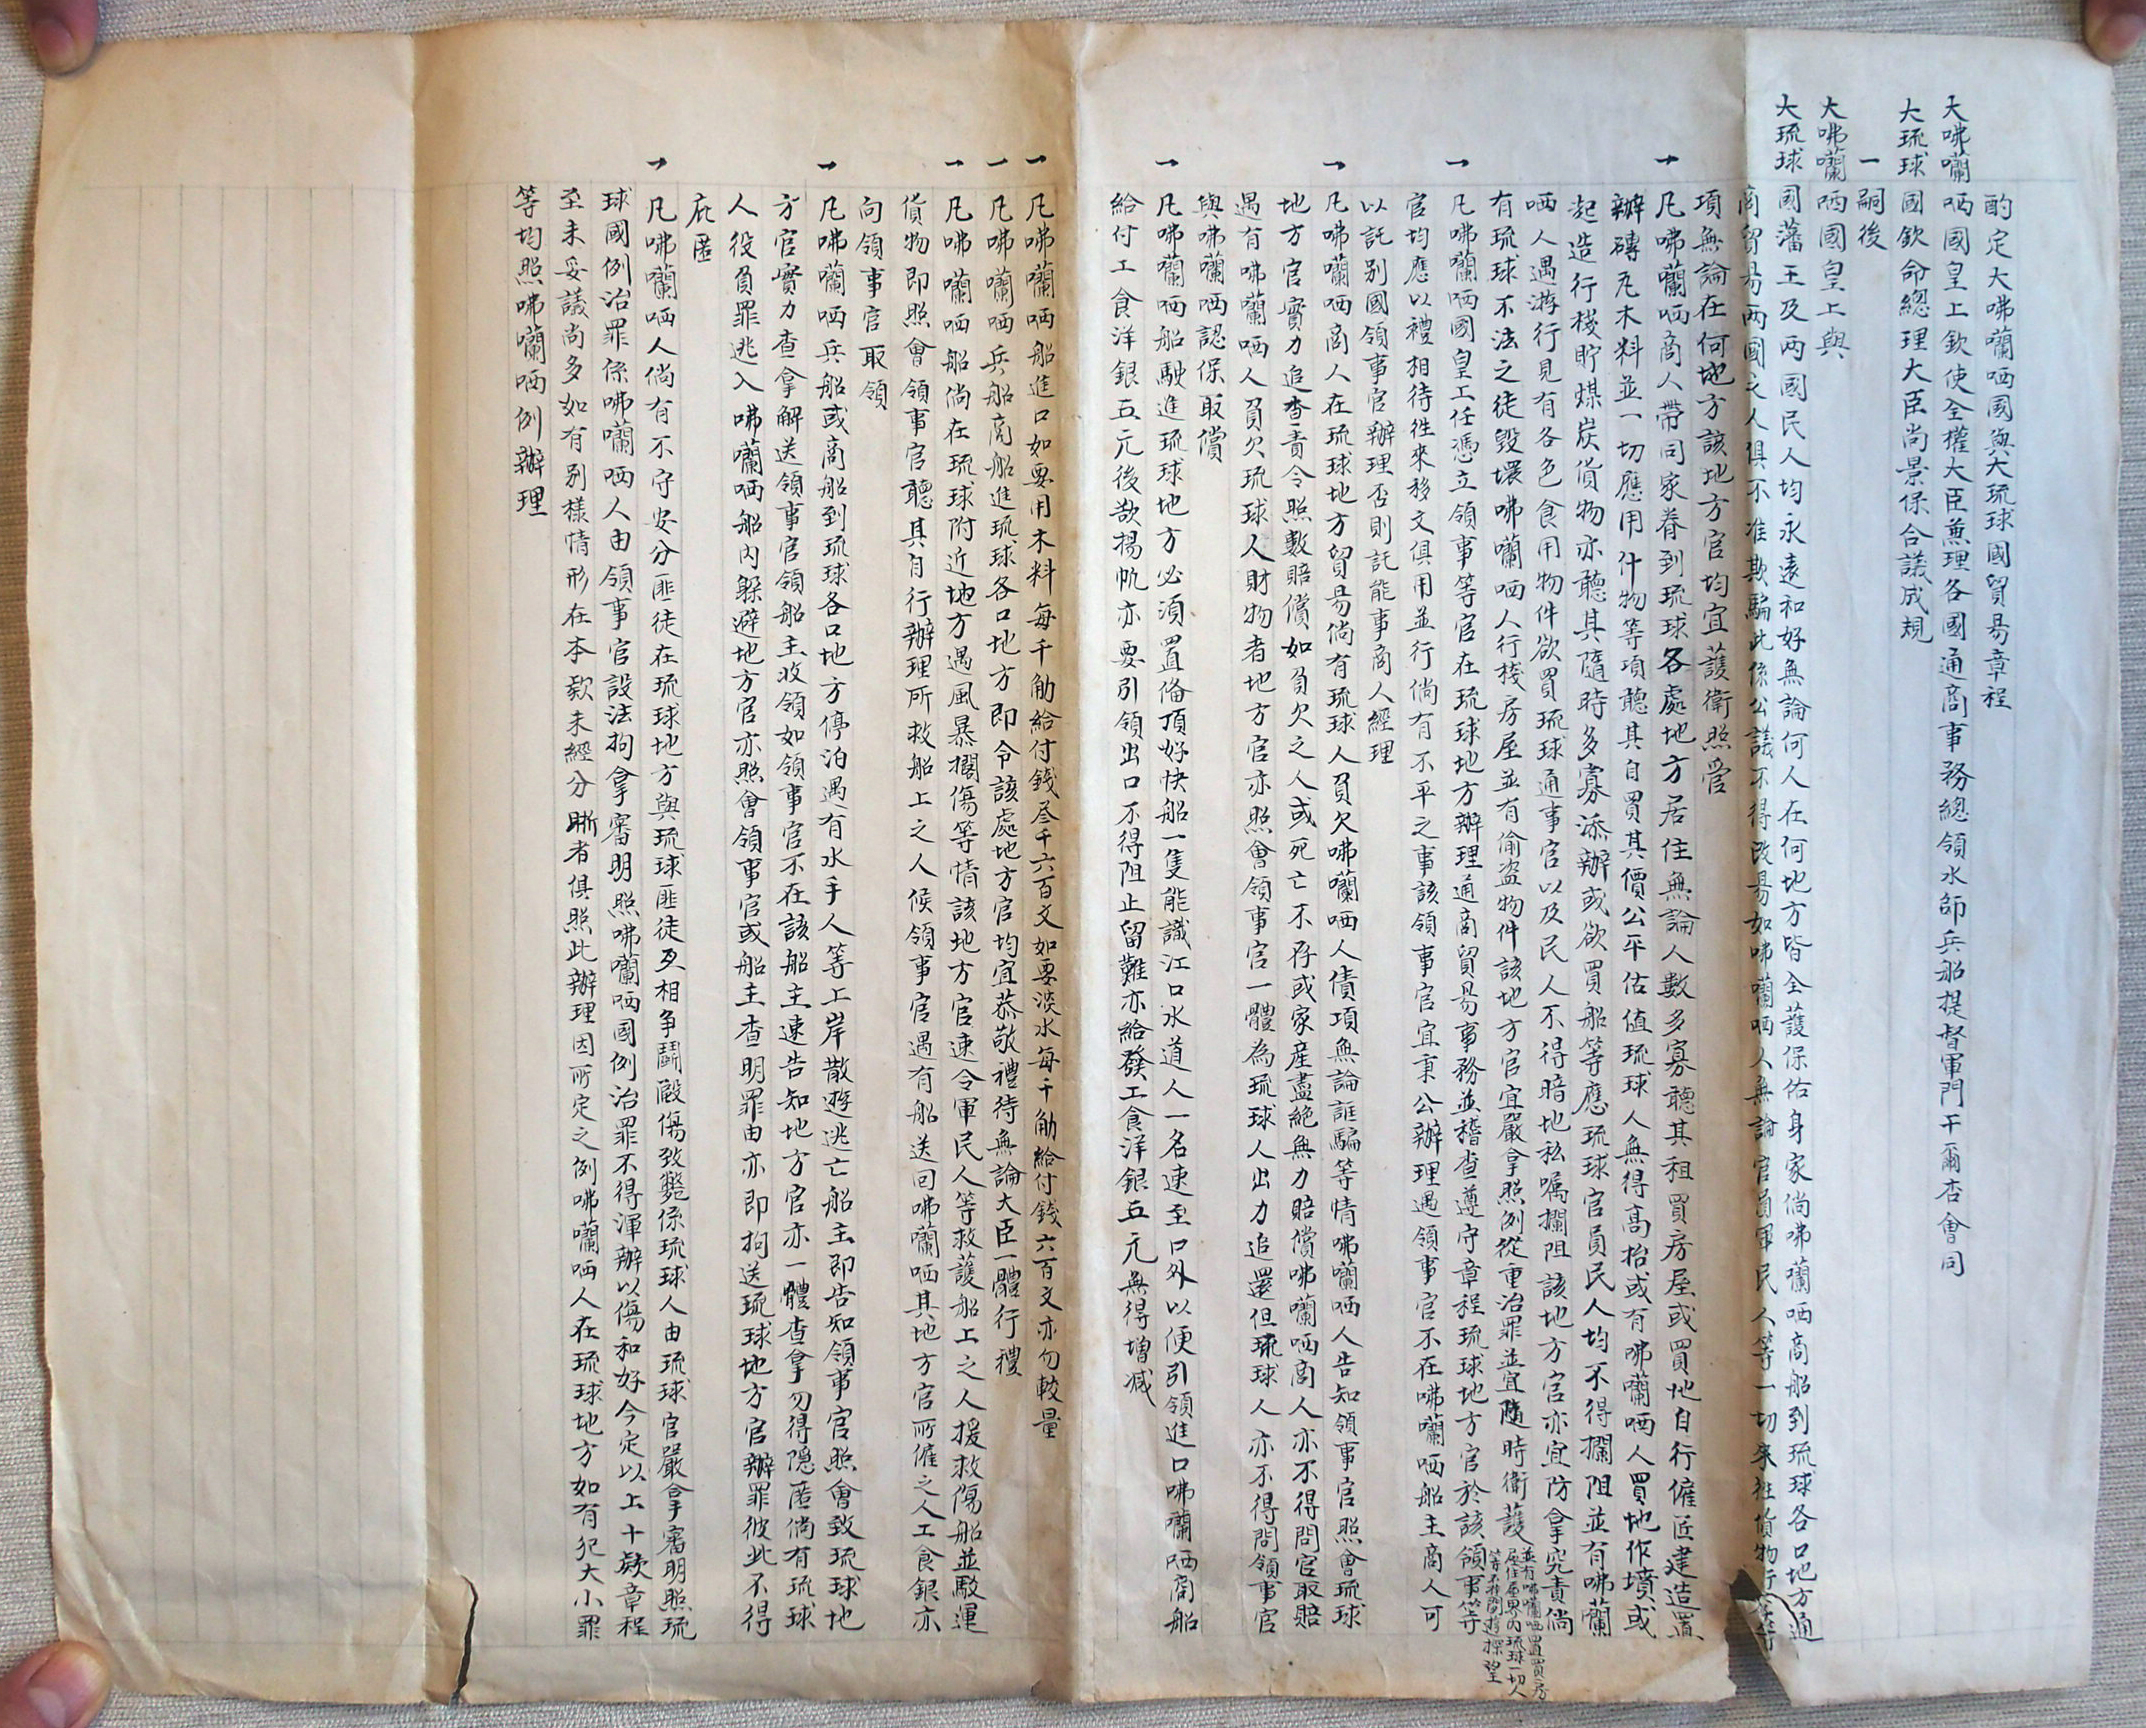 酌定大咈囒哂國與大琉球國貿易章程
大咈囒哂國皇上欽使全權大臣兼理各國通商事務總領水師兵船提督軍門干爾杏會同
大琉球國欽命總理大臣尚景保合議成規
一 嗣後
大咈囒哂國皇上與
大琉球國藩王及兩國民人均永遠和好無論何人在何地方皆全護保佑身家倘咈囒哂商船到琉球各口地方通
商貿易兩國之人俱不准欺騙此係公議不得改易如咈囒哂人無論官員軍民人等一切來往貨物行李等
項無論在何地方該地方官均宜護衛照管
一 凡咈囒哂商人帶同家眷到琉球各處地方居住無論人數多寡聽其租買房屋或買地自行僱匠建造置
辦磚瓦木料並一切應用什物等項聽其自買其價公平估值琉球人無得高抬或有咈囒哂人買地作墳或
起造行棧貯煤炭貨物亦聽其隨時多寡添辦或欲買船等應琉球官員民人均不得攔阻並有咈囒
哂人遇游行見有各色食用物件欲買琉球通事官以及民人不得暗地私囑攔阻該地方官亦宜防拿究責倘
有琉球不法之徒毀壞咈囒哂人行棧房屋並有偷盜物件該地方官宜嚴拿照例從重治罪並宜隨時衛護並有咈囒哂置買房屋住居界內琉球一切人等不得闖遊探望
一 凡咈囒哂國皇上任憑立領事等官在琉球地方辦理通商貿易事務並稽查遵守章程琉球地方官於該領事等
官均應以禮相待往來移文俱用並行倘有不平之事該領事官宜秉公辦理遇領事官不在咈囒哂船主商人可
以託別國領事官辦理否則託能事商人經理
一 凡咈囒哂商人在琉球地方貿易倘有琉球人負欠咈囒哂人債項無論誆騙等情咈囒哂人告知領事官照會琉球
地方官實力追查責令照數賠償如負欠之人或死亡不存或家產盡絕無力賠償咈囒哂商人亦不得問官取賠
遇有咈囒哂人負欠琉球人財物者地方官亦照會領事官一體為琉球人出力追還但琉球人亦不得問領事官
與咈囒哂認保取償
一 凡咈囒哂船駛進琉球地方必須置俻頂好快船一隻能識江口水道人一名速至口外以便引領進口咈囒哂商船
給付工食洋銀五元後欲揚帆亦要引領出口不得阻止留難亦給發工食洋銀五元無得增減
一 凡咈囒哂船進口如要用木料每千觔給付錢叁千六百文如要淡水每千觔給付錢六百文亦勿較量
一 凡咈囒哂兵船商船進琉球各口地方即令該處地方官均宜恭敬禮待無論大臣一體行禮
一 凡咈囒哂船倘在琉球附近地方遇風暴擱傷等情該地方官速令軍民人等救護船上之人援救傷船並駁運
貨物即照會領事官聽其自行辦理所救船上之人候領事官遇有船送回咈囒哂其地方官所僱之人工食銀亦
向領事官取領
一 凡咈囒哂兵船或商船到琉球各口地方停泊遇有水手人等上岸散遊逃亡船主即告知領事官照會致琉球地
方官實力查拿解送領事官領船主收領如領事官不在該船主速告知地方官亦一體查拿勿得隱匿倘有琉球
人役負罪逃入咈囒哂船內躲避地方官亦照會領事官或船主查明罪由亦即拘送琉球地方官辦罪彼此不得
庇匿
一 凡咈囒哂人倘有不守安分匪徒在琉球地方與琉球匪徒互相争鬭毆傷致斃係琉球人由琉球官嚴拿審明照琉
球國例治罪係咈囒哂人由領事官設法拘拿審明照咈囒哂國例治罪不得渾辦以傷和好今定以上十款章程
至未妥議尚多如有別樣情形在本款未經分晰者俱照此辦理因所定之例咈囒哂人在琉球地方如有犯大小罪
等均照咈囒哂例辦理